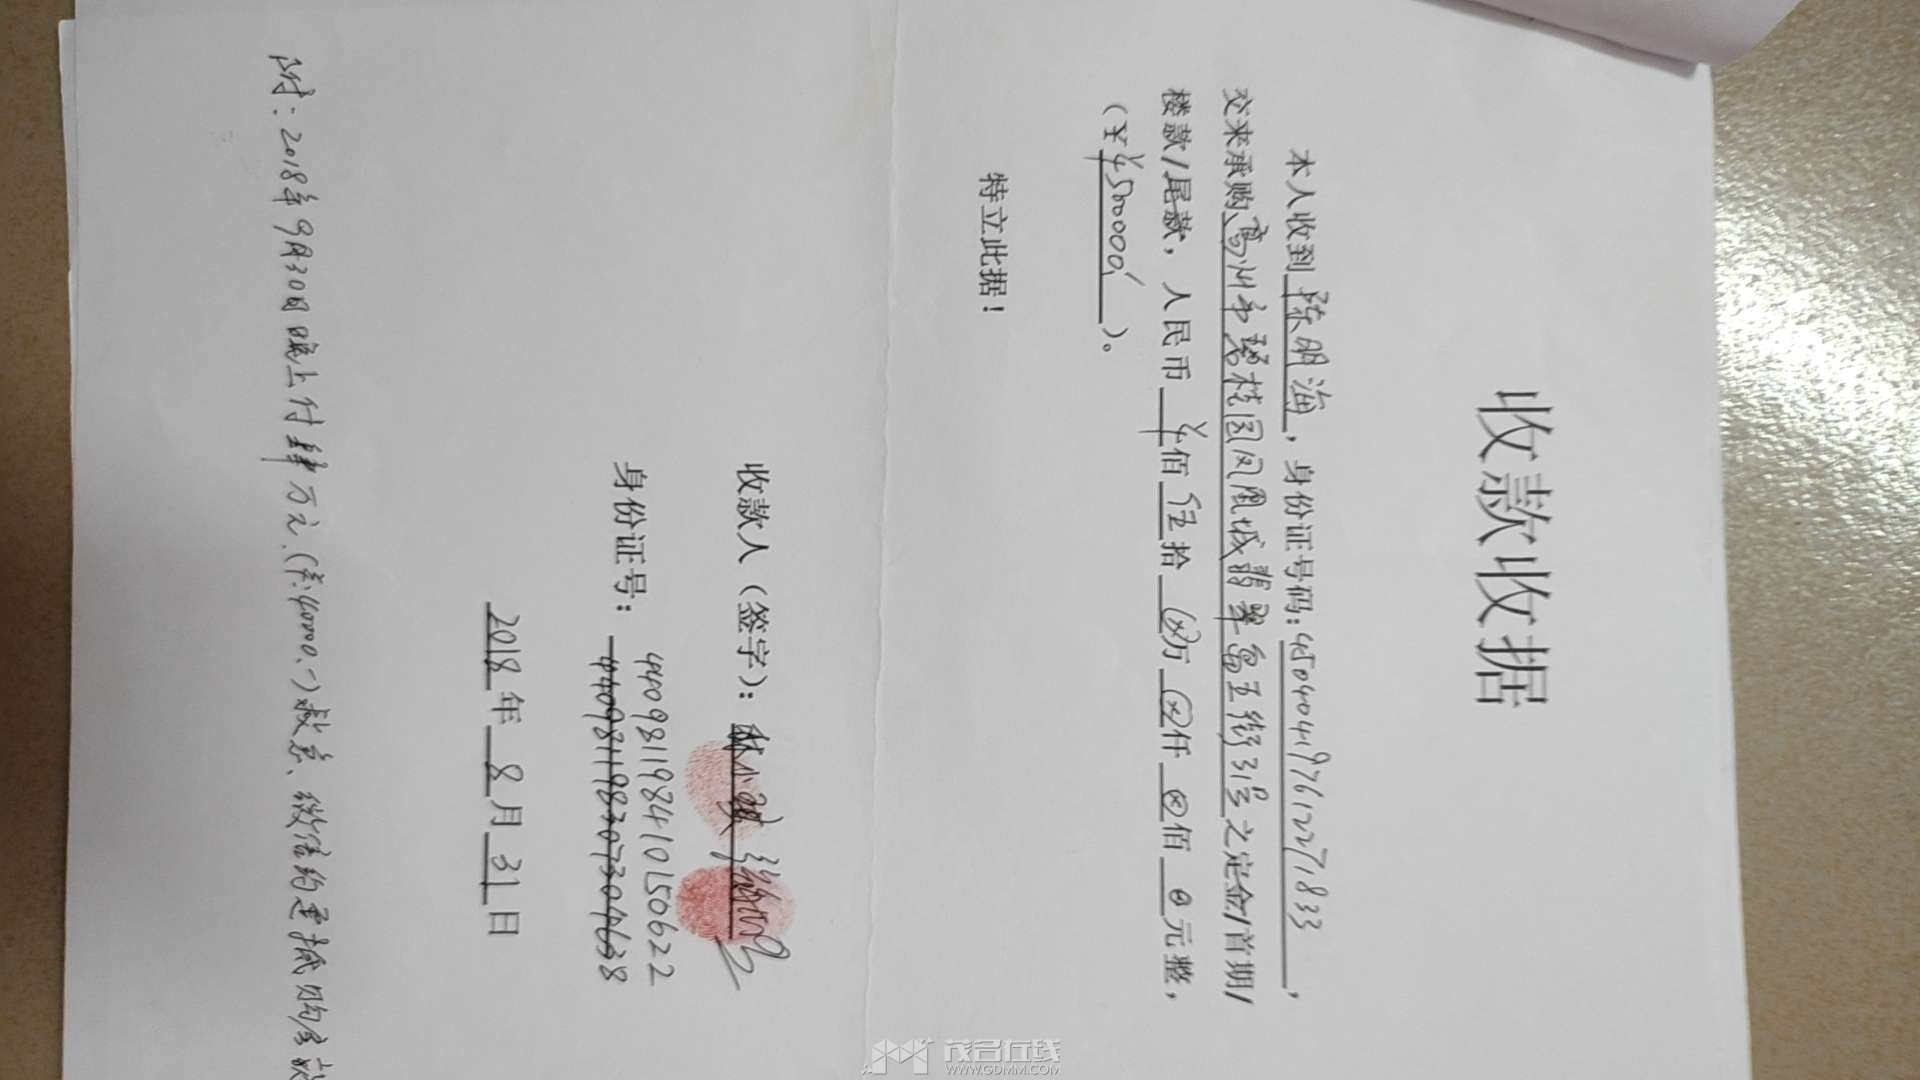 收款收据
本人收到陈明海，身份证号码：450404197612271833，
交来承购高州市碧桂园凤凰城翡翠岛五街31号之定金/首期/
楼款/尾款，人民币 ¥佰伍拾⊗万⊗仟⊗佰θ元整，
（¥¥500000）。
特立此据！
收款人（签字）：林小
440981198410150622
身份证号：
2018年8月31日
附：2018年9月30日晚上付肆万元（¥:40000.-）
茂名在线
WWW.GDMM.COM